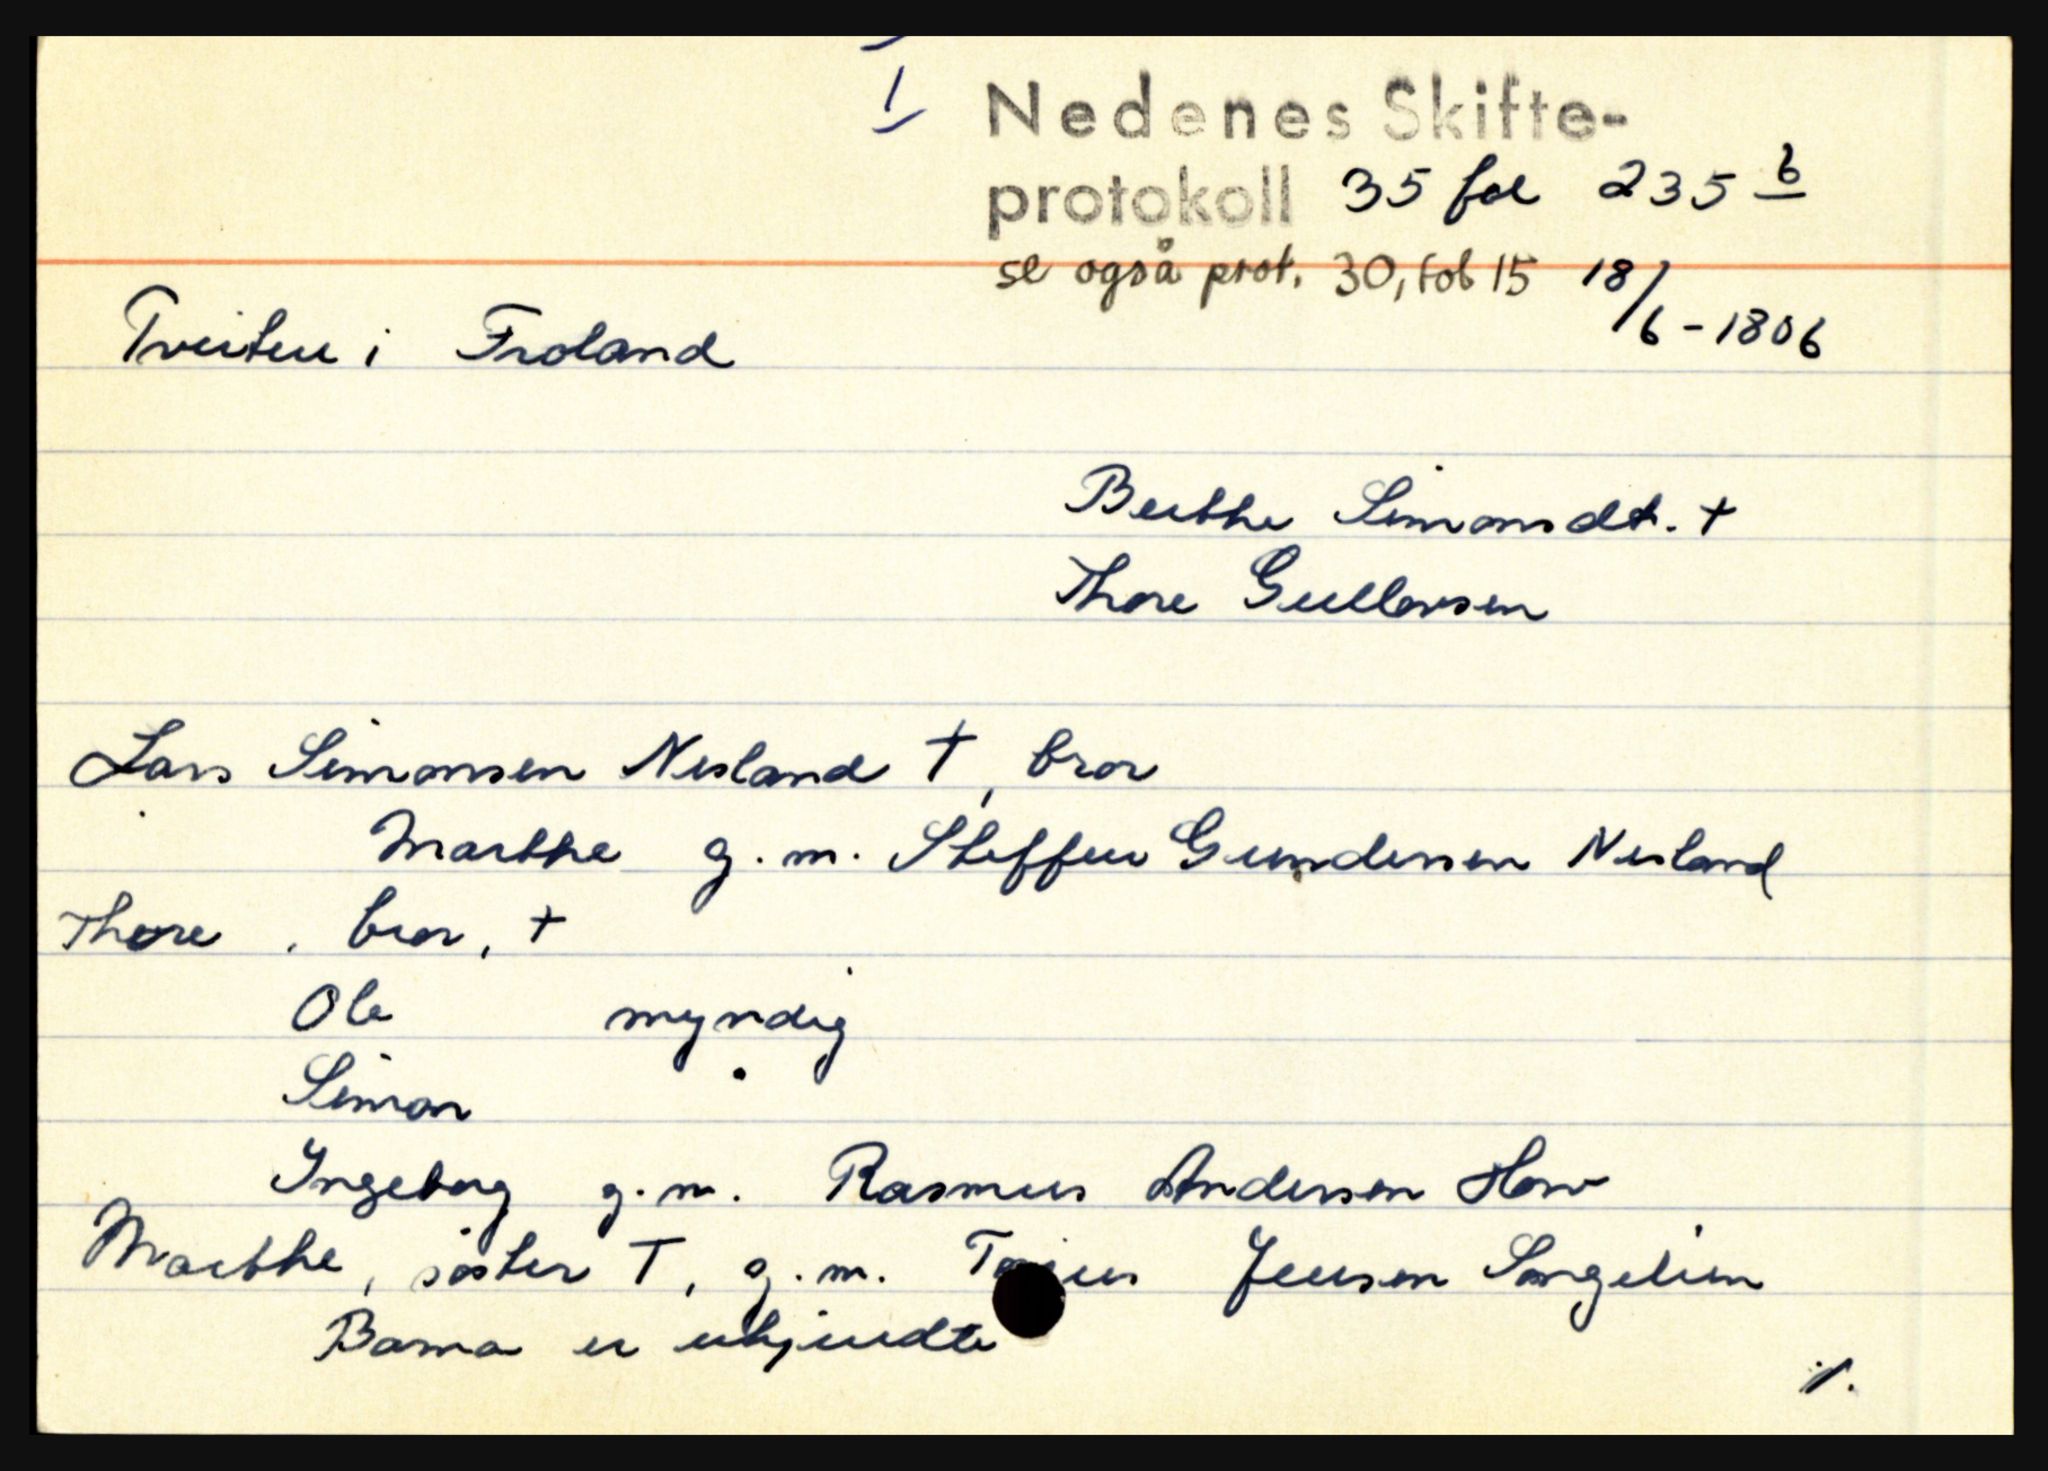 I
Nedenes Skifte-
protokoll 35 fol 235 b
se også prot. 30, fol 15 18/6-1806
Tveiten i Froland
Berthe Simonsdt. †
Thore Gullovsen
Lars Simonsen Nesland †, bror
Marthe g.m. Steffen Gundersen Nesland
Thore, bror, †
Ole myndig
Simon "
Ingeborg g.m. Rasmus Andersen
Marthe, søster †, g.m. Jensen Songelien
Barna er ukjendte
./.